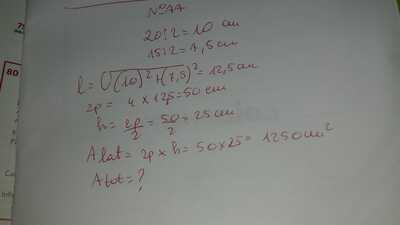 N°77
20:2=10 cm
15:2=7,5cm
l = √(10)²+(7,5)² = 12,5cm
2p = 4 x 12,5=50 cm
h = 2p/2 = 50/2 = 25 cm
A lat = 2p x h = 50x25= 1250 cm²
A tot = ?